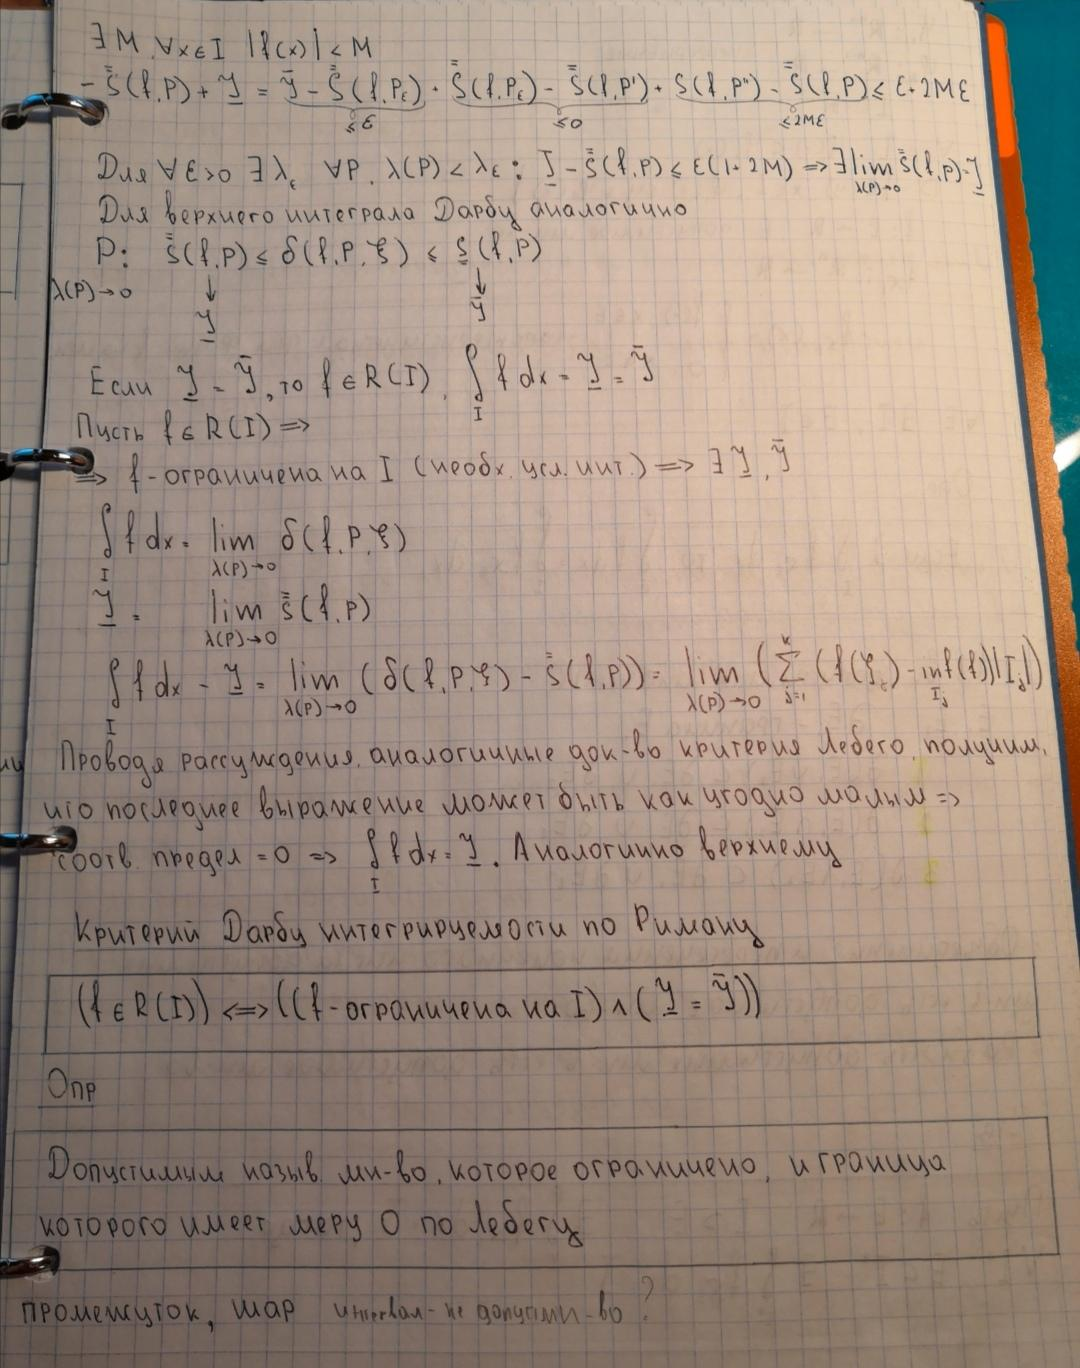 ∃ M, ∀x∈I |f(x)| < M
- s̿(f,P) + J̲ = J̄ - s̿(f,P_ε) + s̿(f,P_ε) - s̿(f,P') + s(f,P'') - s̿(f,P) ≤ ε + 2Mε
≤ε ≤0 ≤2Mε
Для ∀ε>0 ∃λ_ε ∀P, λ(P) < λ_ε : J̲ - s̿(f,P) ≤ ε(1+2M) => ∃ lim s̿(f,P) = J̲
λ(P)→0
Для верхнего интеграла Дарбу аналогично
P: s̿(f,P) ≤ δ(f,P,ξ) ≤ s̲(f,P)
λ(P)→0 ↓ ↓
J̲ J̄
Если J̲ = J̄, то f∈R(I), ∫ f dx = J̲ = J̄
I
Пусть f∈R(I) =>
=> f - ограничена на I (необх. усл. инт.) => ∃ J̲, J̄
∫ f dx = lim δ(f,P,ξ)
I λ(P)→0
J̲ = lim s̿(f,P)
λ(P)→0
∫ f dx - J̲ = lim (δ(f,P,ξ) - s̿(f,P)) = lim (∑ (f(ξ_c) - inf(f))|I_j|)
I λ(P)→0 λ(P)→0 j=1 I_j
Проводя рассуждения, аналогичные док-во критерия Лебего, получим,
что последнее выражение может быть как угодно малым =>
соотв. предел = 0 => ∫ f dx = J̲. Аналогично верхнему
I
Критерий Дарбу интегрируемости по Риману
(f∈R(I)) <=> ((f - ограничена на I) ∧ (J̲ = J̄))
Опр
Допустимым назыв. мн-во, которое ограничено, и граница
которого имеет меру 0 по Лебегу
промежуток, шар интервал - не допустим-во ?